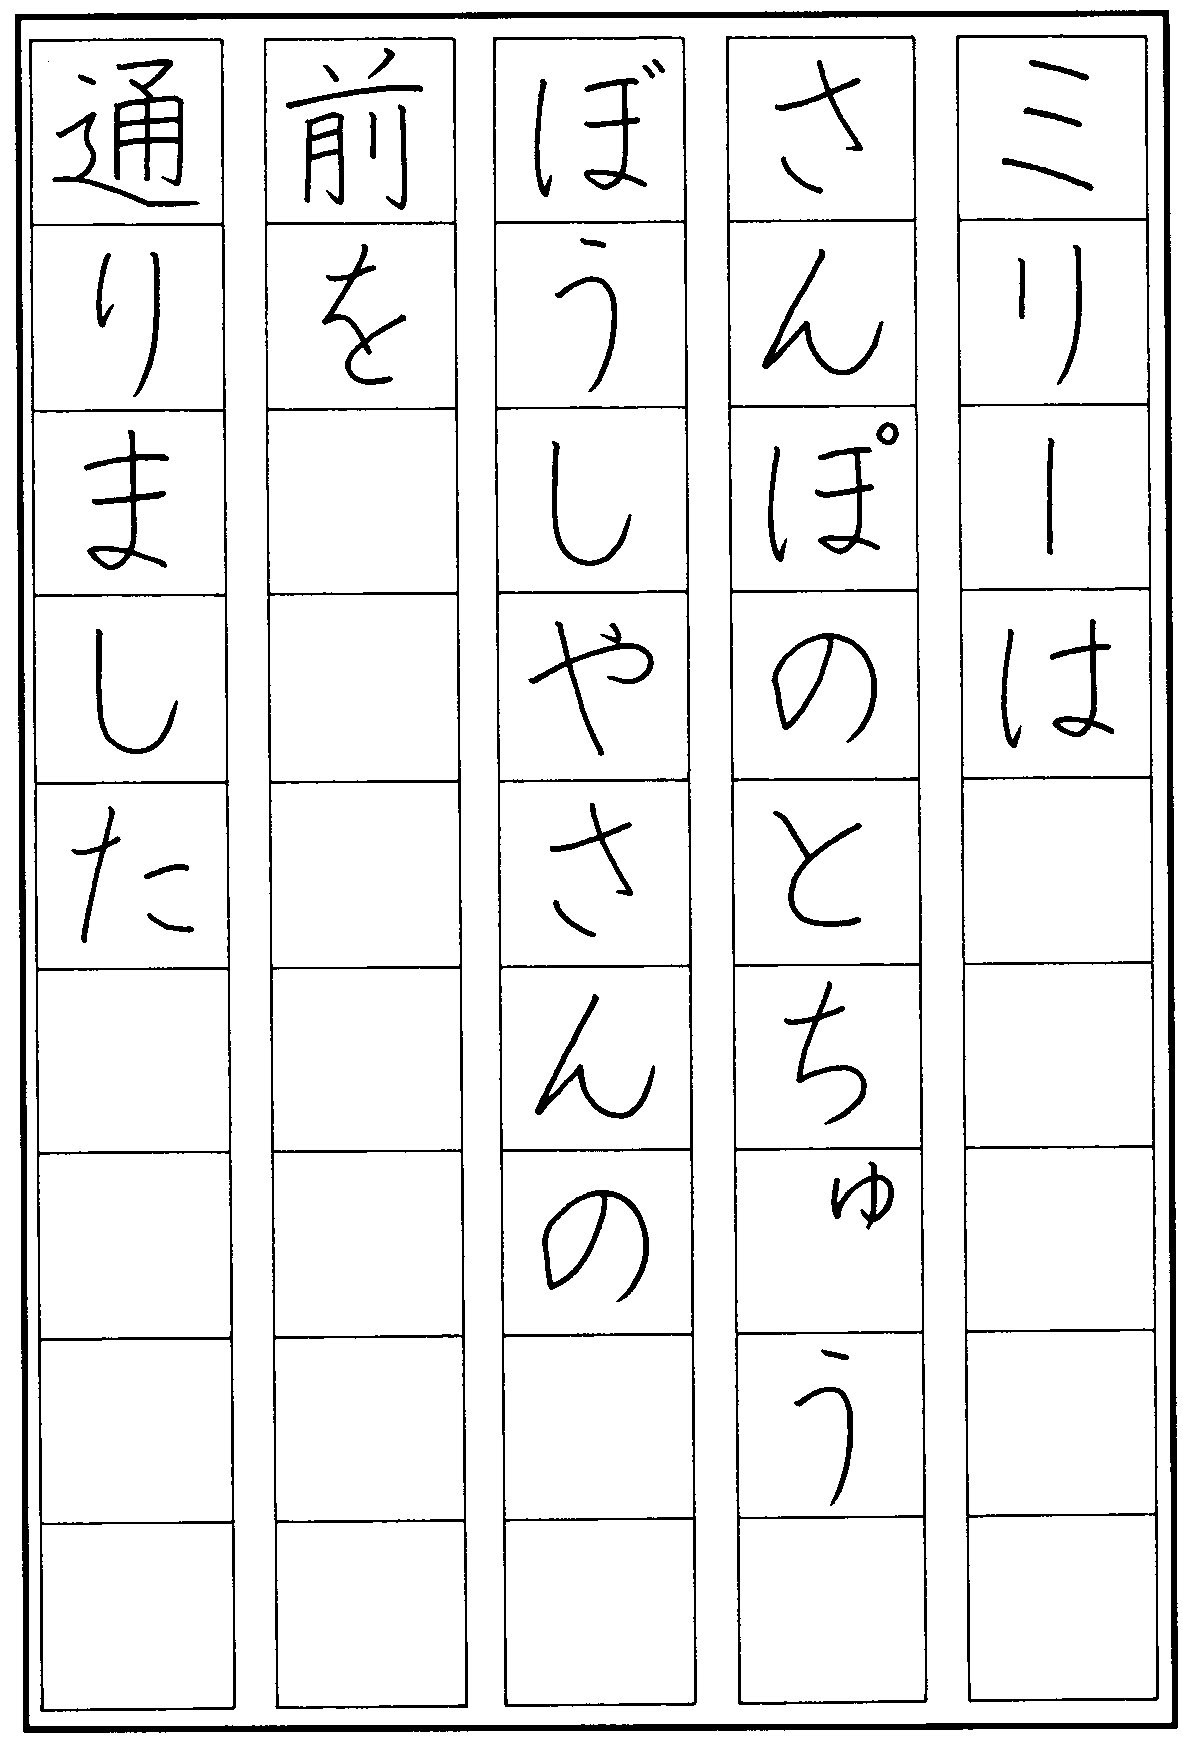 ミリーは
さんぽのとちゅう
ぼうしやさんの
前を
通りました